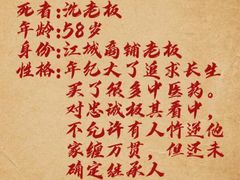 死者:沈老板
年龄:58岁
身份:江城商铺老板
性格:年纪大了追求长生
买了很多中医药。
对忠诚极其看中，
不允许有人忤逆他
家缠万贯，但还未
确定继承人